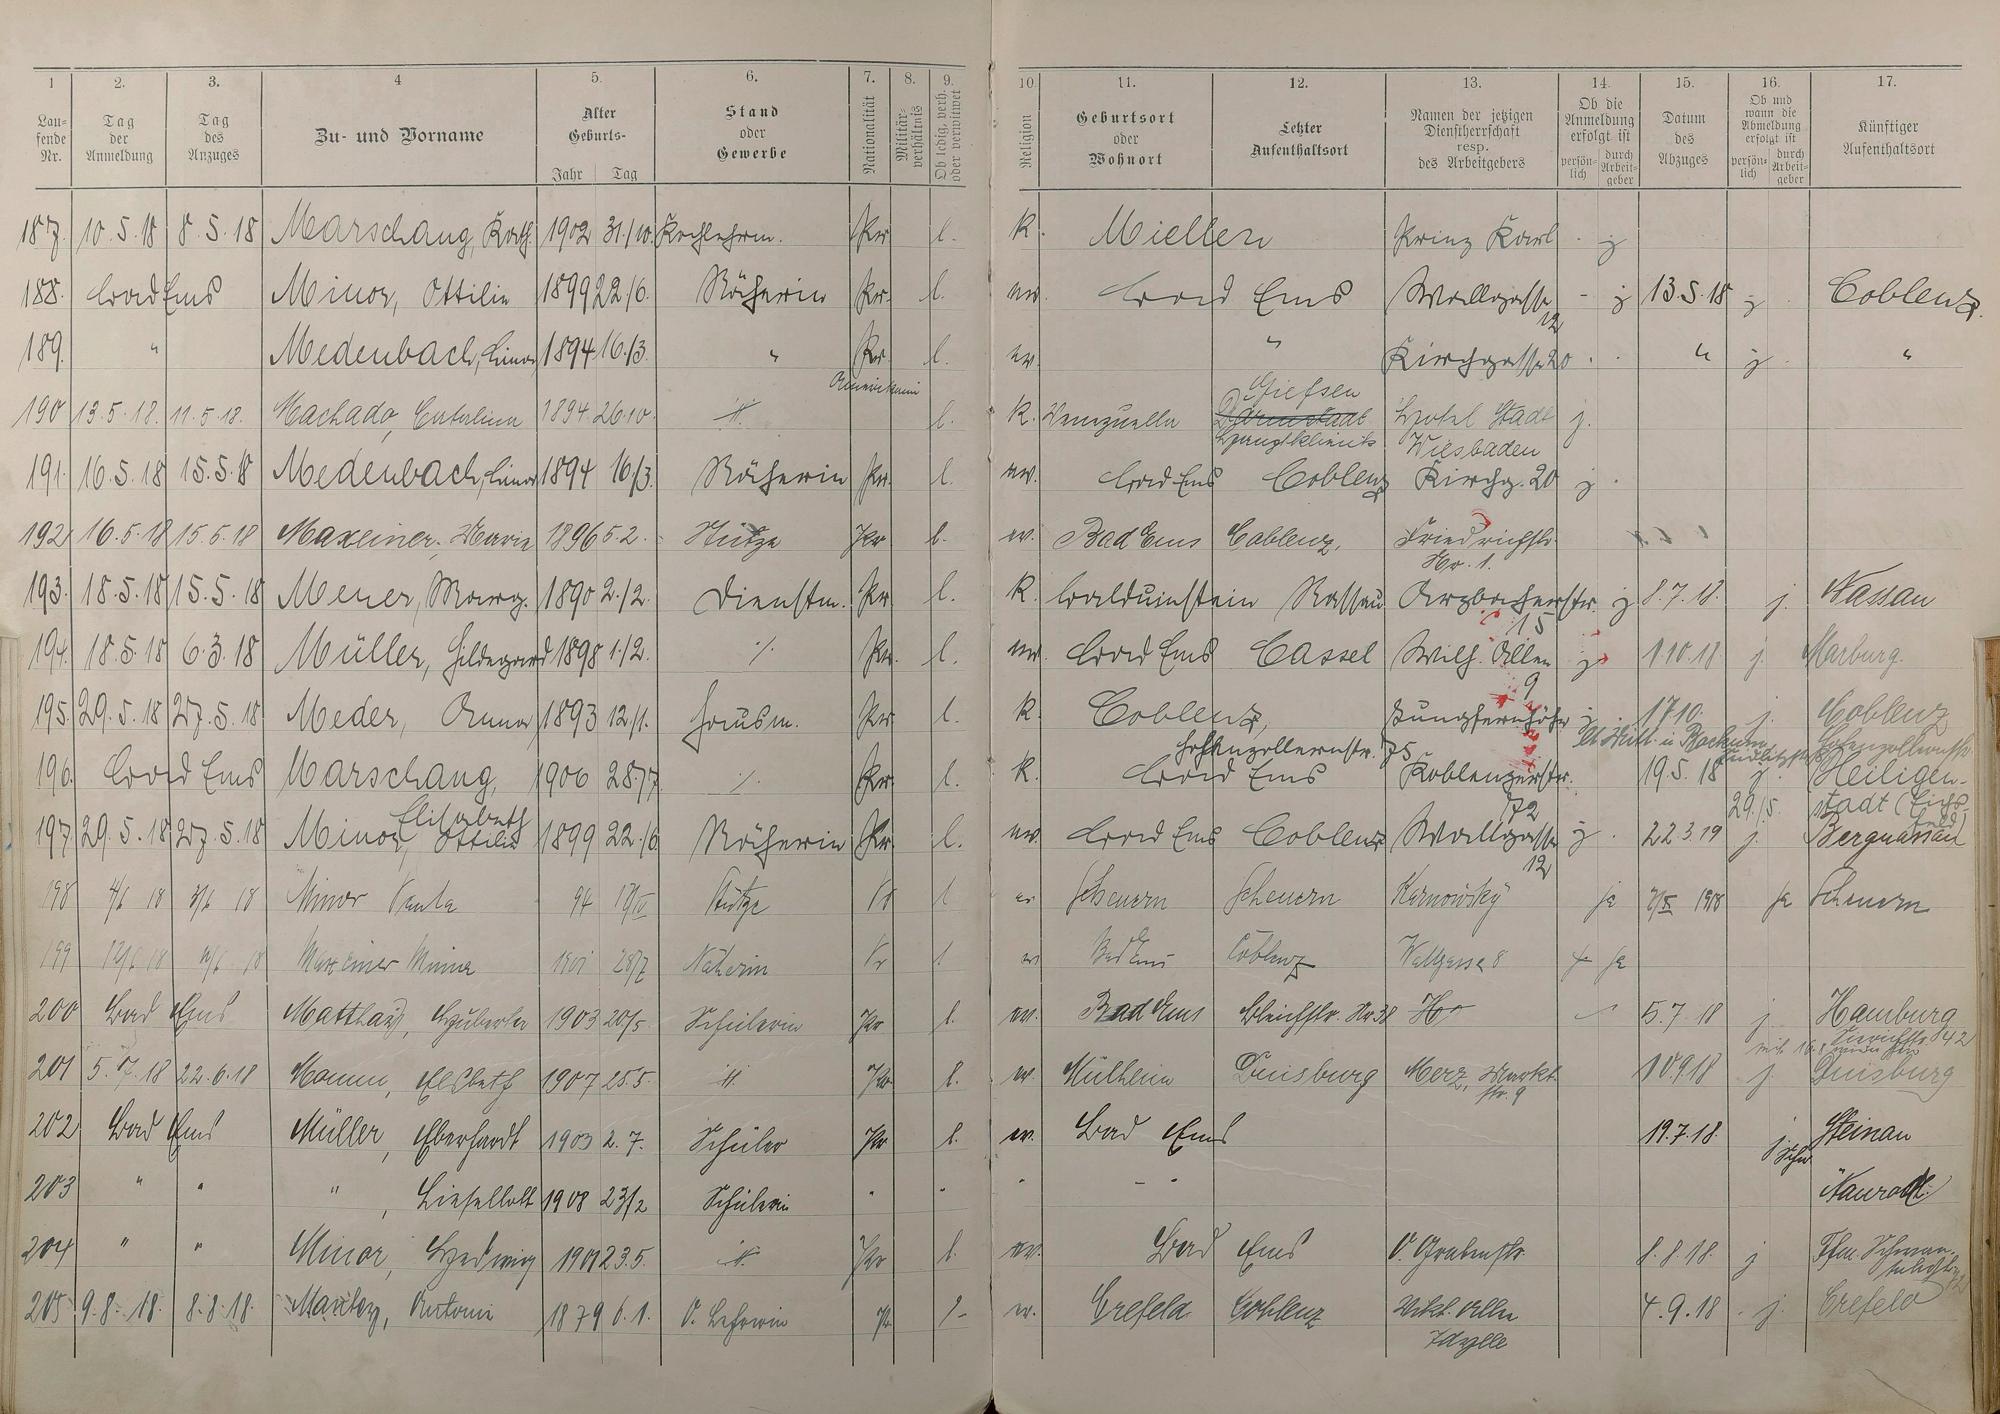 1 2. 3. 4 5. 6. 7. 8. 9. 10 11. 12. 13. 14. 15. 16. 17.
Laufende Nr. Tag der Anmeldung Tag des Anzuges Zu- und Vorname Alter Geburts- Jahr Tag Stand oder Gewerbe Nationalität Militärverhältnis Ob ledig, verh. oder verwitwet Religion Geburtsort oder Wohnort Letzter Aufenthaltsort Namen der jetzigen Dienstherrschaft resp. des Arbeitgebers Ob die Anmeldung erfolgt ist persönlich durch Arbeitgeber Datum des Abzuges Ob und wann die Abmeldung erfolgt ist persönlich durch Arbeitgeber Künftiger Aufenthaltsort
187. 10.5.18 8.5.18 Marschang, Kath. 1902 31./10. Kochlehrm. Pr. l. K. Miellen Prinz Karl - j
188. Bad Ems Minor, Ottilie 1899 22./6. Näherin Pr. l. ev. Bad Ems Wallgasse 12 - j 13.5.18 j. Coblenz.
189. " Medenbach, Lina 1894 16./3. " Pr. l. ev. " Kirchgasse 20 " j "
190 13.5.18. 11.5.18. Machado, Catalina 1894 26.10. ". Amerikani l. K. Venezuella Giessen Hotel Stadt Wiesbaden j.
191. 16.5.18 15.5.18 Medenbach, Lina 1894 16./3. Näherin Pr. l. ev. Bad Ems Coblenz Kirchg. 20 j.
192 16.5.18 15.5.18 Maxeiner, Marie 1896 5.2. Stütze Pr l. ev. Bad Ems Coblenz. Friedrichstr. Nr. 1.
193. 18.5.18 15.5.18 Meuer, Marg. 1890 2./2. Dienstm. Pr. l. K. Balduinstein Nassau Arzbacherstr. 15 j 8.7.18. j. Nassau
194. 18.5.18 6.3.18 Müller, Hildegard 1898 1./2. ./. Pr. l. ev. Bad Ems Cassel Wilh. Allee 9 j 1.10.18 j. Marburg.
195. 29.5.18 27.5.18 Meder, Anna 1893 12./1. Hausm. Pr. l. K. Coblenz, Hohenzollernstr. 75 Jungfernhöhe j 17.10. j. Coblenz Hohenzollernstr
196. Bad Ems Marschang, Elisabeth 1906 28./7 ./. Pr. l. K. Bad Ems Koblenzerstr. 72 19.5.18 j 29./5. Heiligenstadt (Eichsfeld)
197. 29.5.18 27.5.18 Minor, Ottilie 1899 22./6 Näherin Pr. l. ev. Bad Ems Coblenz Wallgasse 12 j. 22.3.19 j. Bergnassau
198 4/6 18 3/6 18 Minor Paula 94 17/IV Stütze Pr l ev Scheuern Scheuern Karnowsky ja 1918 ja Scheuern
199 12/6 18 18 Maxeiner Minna 1901 28/7 Näherin Pr l ev Bad Ems Coblenz Wallgasse 8 ja
200 Bad Ems Matthäy, Huberta 1903 20/5 Schülerin Pr l. ev. Bad Ems Bleichstr. Nr. 38 5.7.18 j Hamburg
201 5.7.18 22.6.18 Mamm, Elsbeth 1907 25.5. ". Pr l. ev. Mülheim Duisburg Merz, Marktstr. 9 10.9.18 j. Duisburg
202 Bad Ems Müller, Eberhardt 1903 2.7. Schüler Pr l. ev. Bad Ems 19.7.18. j. Steinau
203 " " ", Lieselott 1908 23/2 Schülerin " " " " " Naurod
204 " " Minor, Hedwig 1901 23.5. ". Pr l. ev. Bad Ems O. Grabenstr. 8.8.18. j Ffm.
205 9.8.18. 8.8.18. Antonie 1879 6.1. O. Lehrerin Pr ev. Crefeld Coblenz Vikt. Allee Idylle 4.9.18. j. Crefeld